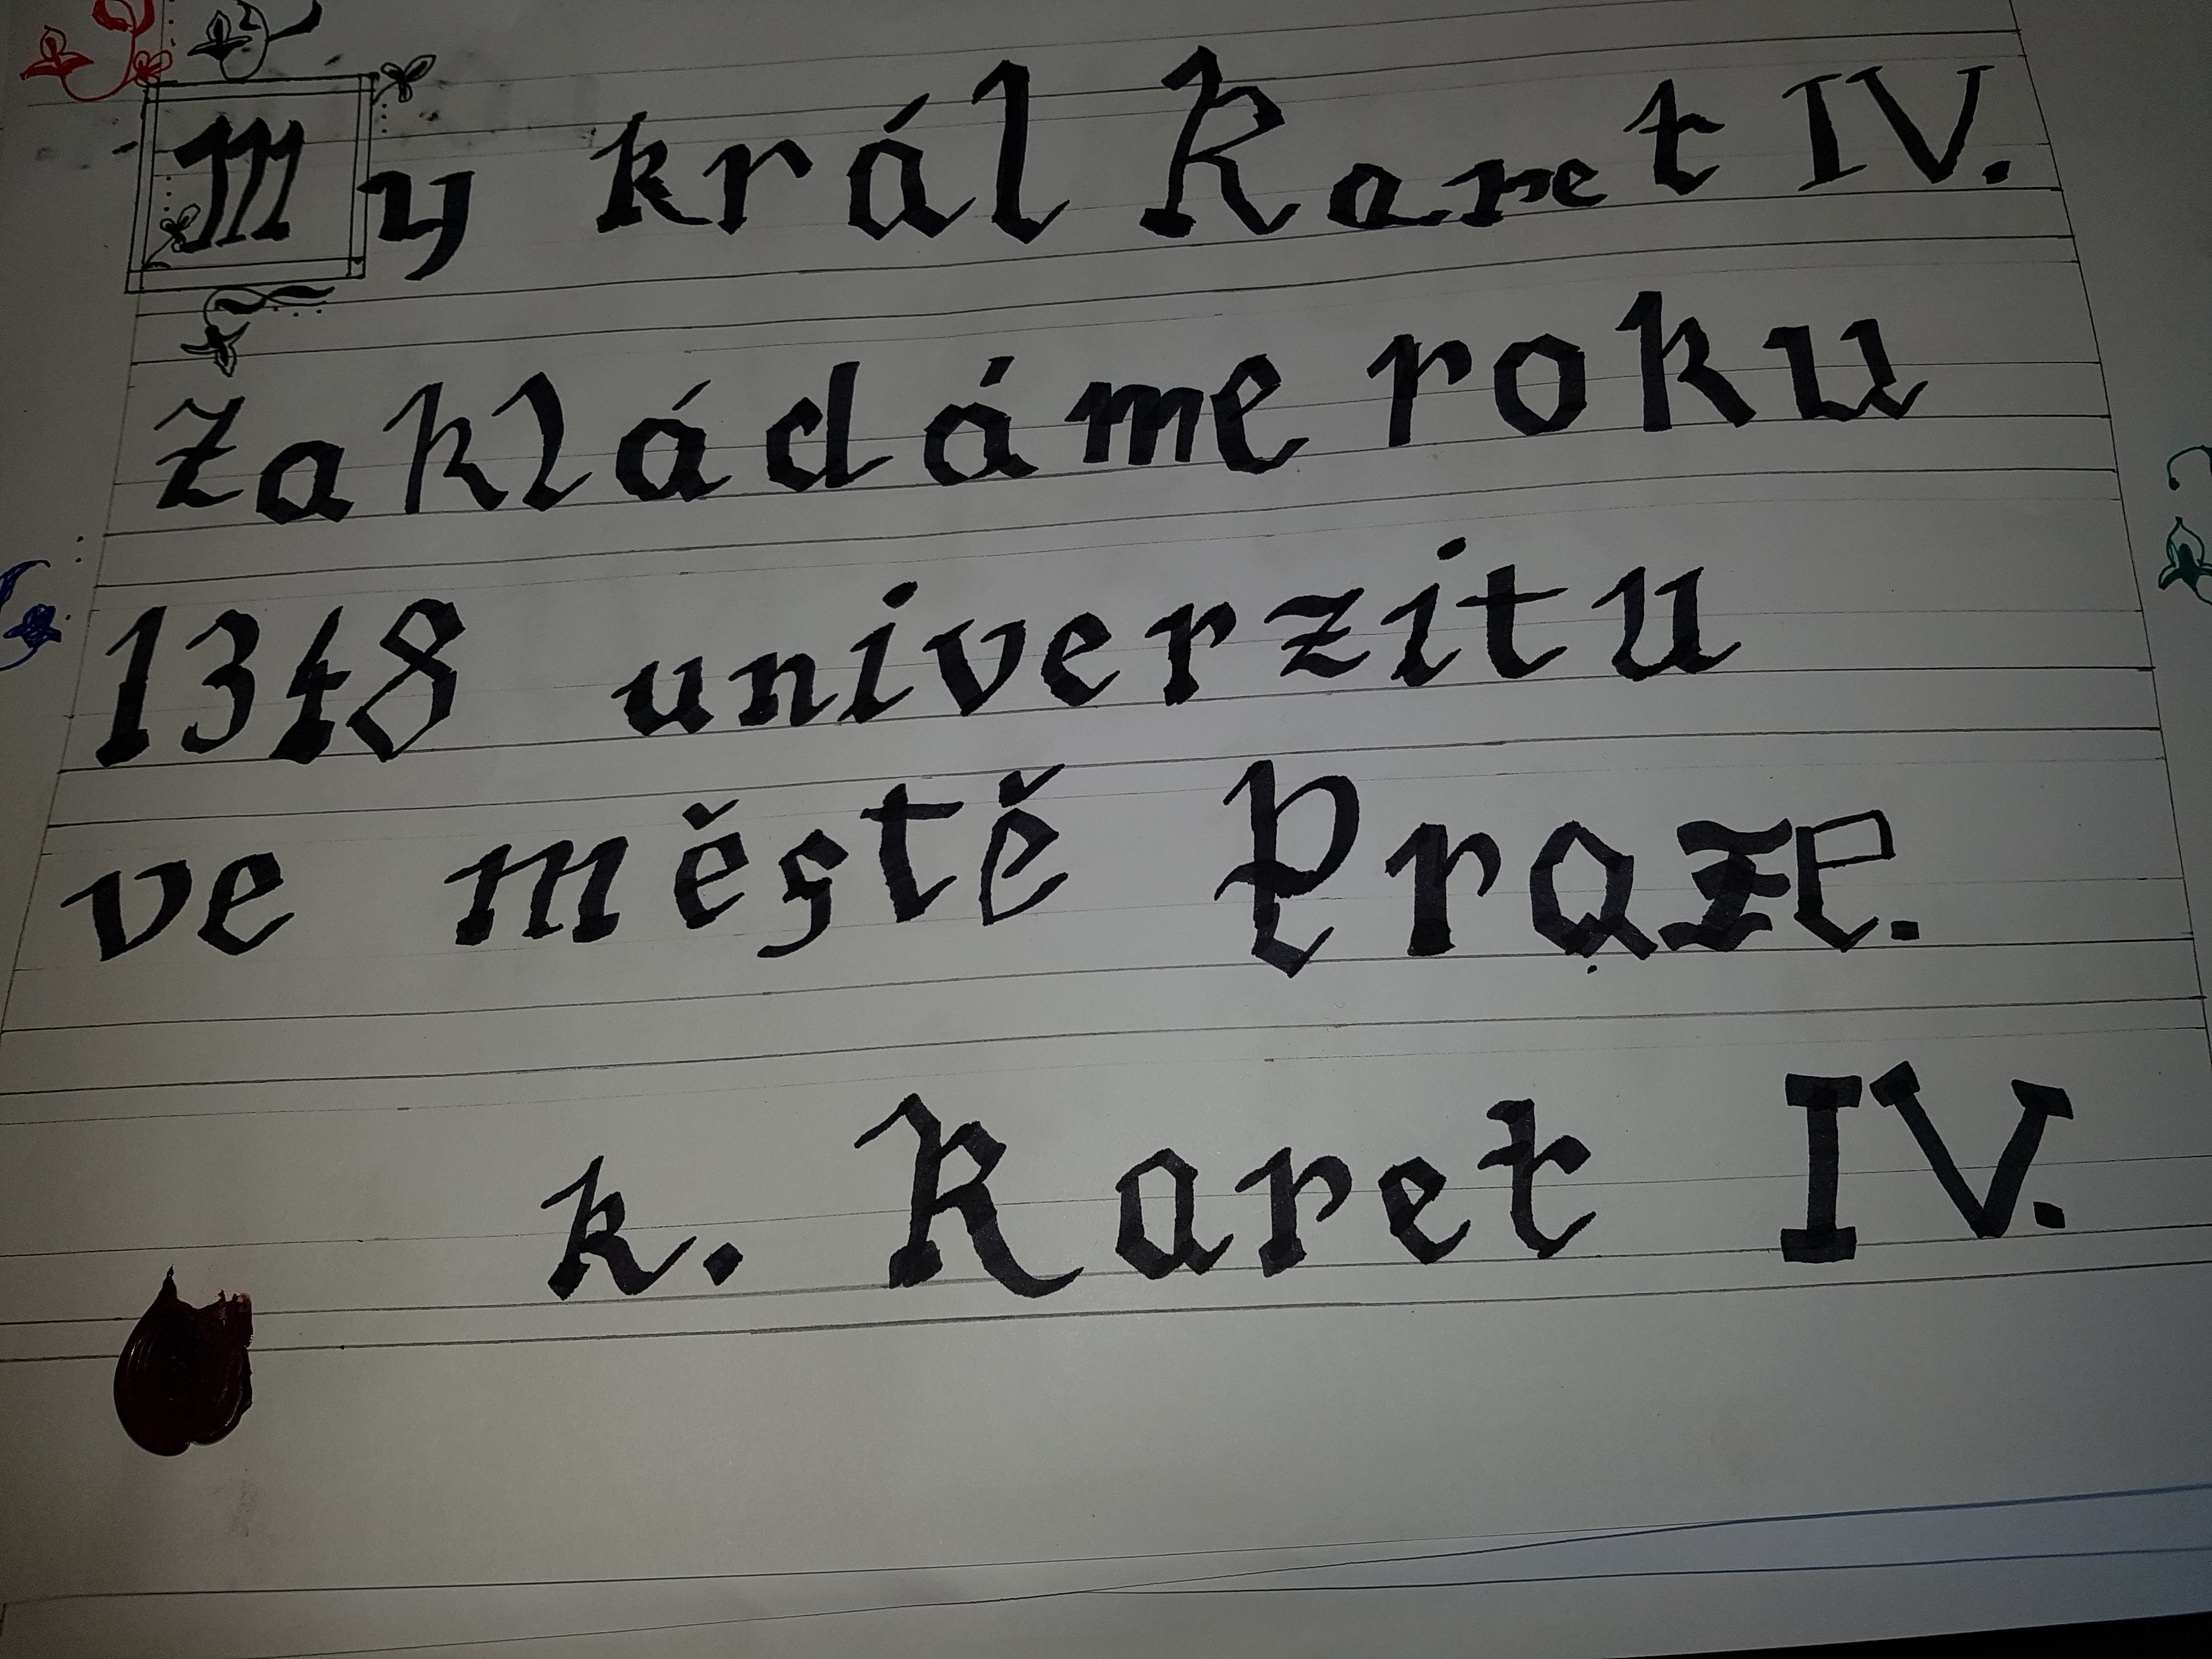 My král Karet IV.
Zakládáme roku
1348 univerzitu
ve městě Praze.
k. Karet IV.